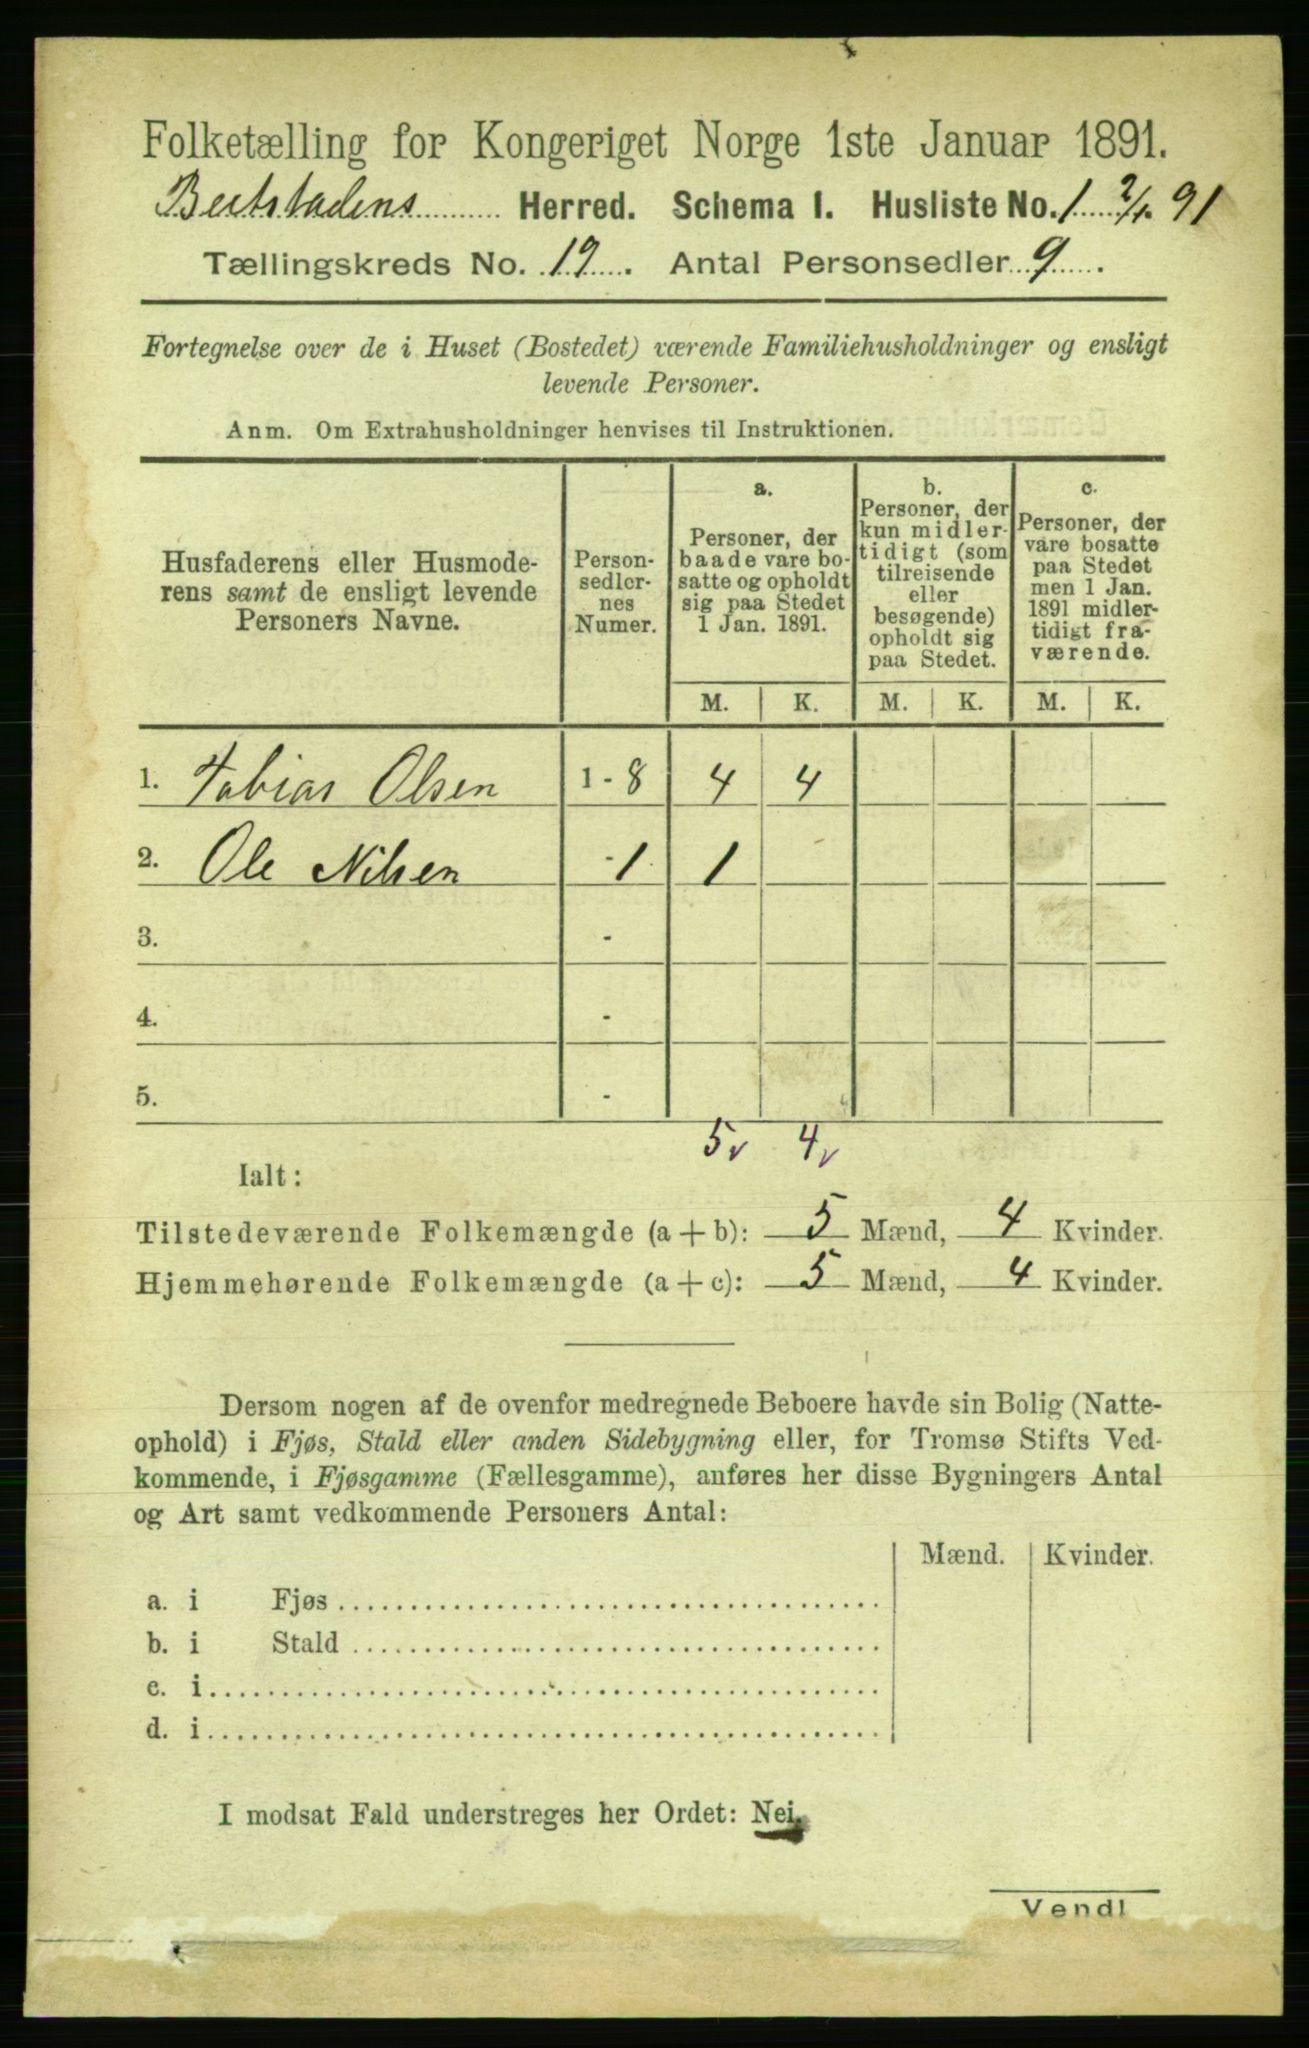 Folketælling for Kongeriget Norge 1ste Januar 1891.
Beitstadens Herred. Schema I. Husliste No. 1 2/1. 91
Tællingskreds No. 12. Antal Personsedler 9
Fortegnelse over de i Huset (Bostedet) værende Familiehusholdninger og ensligt
levende Personer.
Anm. Om Extrahusholdninger henvises til Instruktionen.
Husfaderens eller Husmode-
rens samt de ensligt levende
Personers Navne.
Person-
sedler-
nes
Numer.
a.
Personer, der
baade vare bo-
satte og opholdt
sig paa Stedet
1 Jan. 1891.
b.
Personer, der
kun midler-
tidigt (som
tilreisende
eller
besøgende)
opholdt sig
paa Stedet.
c.
Personer, der
vare bosatte
paa Stedet
men 1 Jan.
1891 midler-
tidigt fra-
værende.
M. K. M. K. M. K.
1. Tobias Olsen 1 - 8 4 4
2. Ole Nilsen - 1 1
3. -
4. -
5. -
5v 4v
Ialt:
Tilstedeværende Folkemængde (a + b): 5 Mænd, 4 Kvinder.
Hjemmehørende Folkemængde (a + c): 5 Mænd, 4 Kvinder.
Dersom nogen af de ovenfor medregnede Beboere havde sin Bolig (Natte-
ophold) i Fjøs, Stald eller anden Sidebygning eller, for Tromsø Stifts Ved-
kommende, i Fjøsgamme (Fællesgamme), anføres her disse Bygningers Antal
og Art samt vedkommende Personers Antal:
Mænd. Kvinder.
a. i Fjøs
b. i Stald
c. i
d. i
I modsat Fald understreges her Ordet: Nei.
Vend!